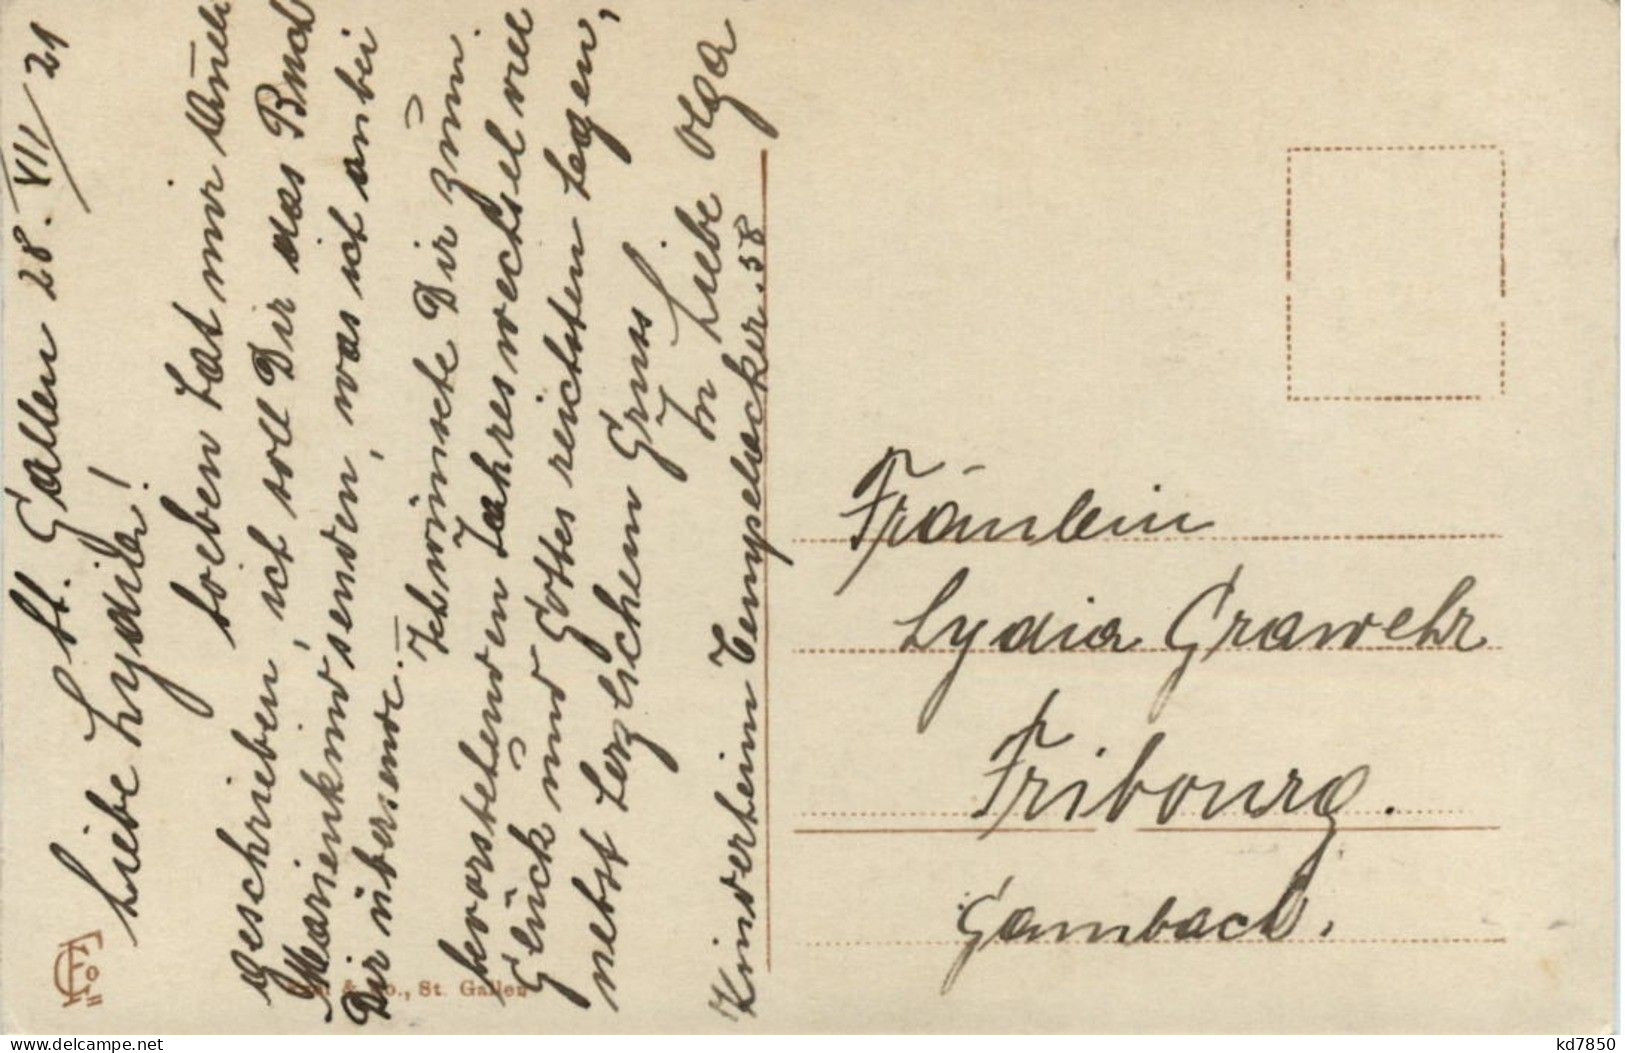 St. Gallen 28. VII/21
Liebe Lydia!
Soeben hat mir
geschrieben, ich soll Dir das Buch
Marienkind senden, was ich anbei
Dir übersende. –
Ich wünsche Dir zum
bevorstehenden Jahreswechsel viel
Glück und Gottes reichsten Segen,
nebst herzlichem Gruss
In Liebe Olga
Kinderheim Tempelacker 58
& Co., St. Gallen
Fräulein
Lydia Grawehr
Fribourg.
Gambach.
delcampe.net
kd7850